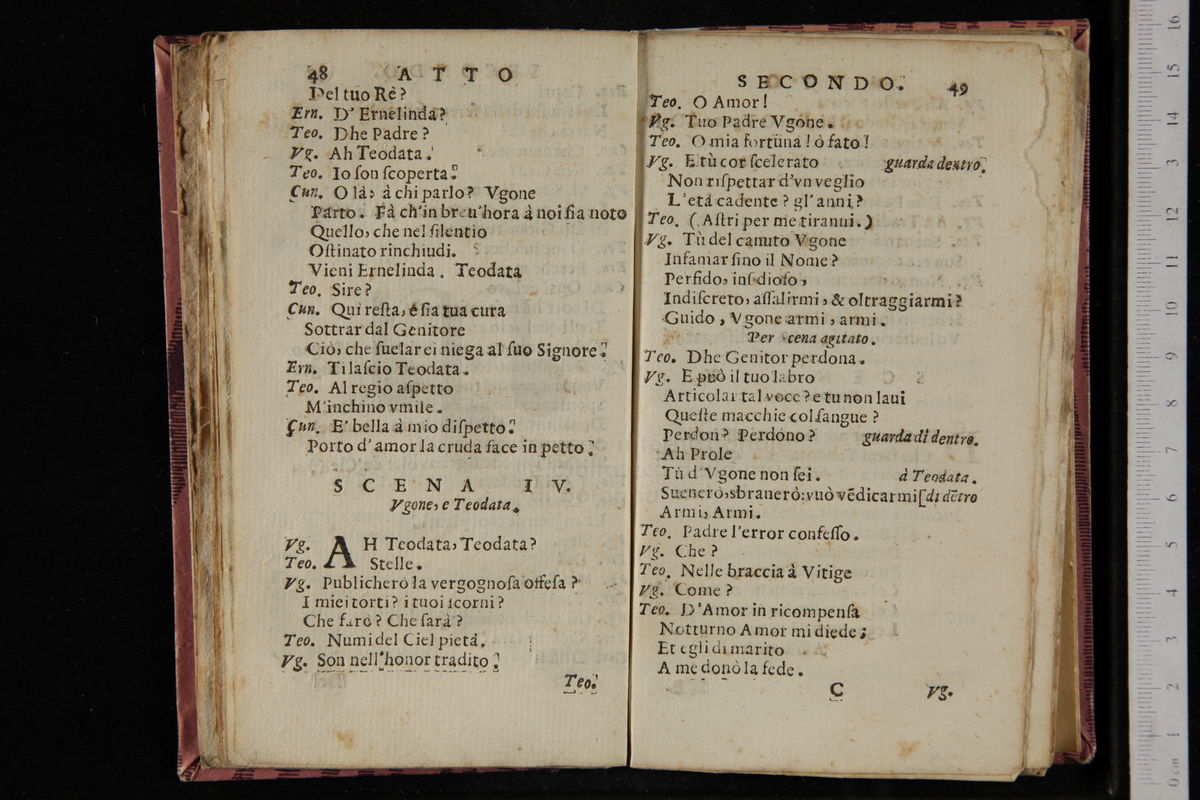 48 ATTO
Del tuo Rè?
Ern. D' Ernelinda?
Teo. Dhe Padre?
Vg. Ah Teodata.
Teo. Io ſon ſcoperta.
Cun. O là, à chi parlo? Vgone
Parto. Fà ch'in breu'hora à noi ſia noto
Quello, che nel ſilentio
Oſtinato rinchiudi.
Vieni Ernelinda. Teodata
Teo. Sire?
Cun. Qui reſta, è ſia tua cura
Sottrar dal Genitore
Ciò, che ſuelar ei niega al ſuo Signore.
Ern. Ti laſcio Teodata.
Teo. Al regio aſpetto
M'inchino vmile.
Cun. E' bella à mio diſpetto.
Porto d'amor la cruda face in petto.
SCENA IV.
Vgone, e Teodata.
Vg. AH Teodata, Teodata?
Teo. Stelle.
Vg. Publicherò la vergognoſa offeſa?
I miei torti? i tuoi ſcorni?
Che farò? Che ſarà?
Teo. Numi del Ciel pietà.
Vg. Son nell'honor tradito.
Teo.
SECONDO. 49
Teo. O Amor!
Vg. Tuo Padre Vgone.
Teo. O mia fortuna! ò fato!
Vg. E tù cor ſcelerato guarda dentro.
Non riſpettar d'vn veglio
L'età cadente? gl' anni?
Teo. (Aſtri per me tiranni.)
Vg. Tù del canuto Vgone
Infamar ſino il Nome?
Perfido, inſidioſo,
Indiſcreto, aſſalirmi, & oltraggiarmi?
Guido, Vgone armi, armi.
Per scena agitato.
Teo. Dhe Genitor perdona.
Vg. E può il tuo labro
Articolar tal voce? e tu non laui
Queſte macchie col ſangue?
Perdon? Perdono? guarda di dentro.
Ah Prole
Tù d'Vgone non ſei. à Teodata.
Suenerò, sbranerò: vuò vēdicarmi [di dētro
Armi, Armi.
Teo. Padre l'error confeſſo.
Vg. Che?
Teo. Nelle braccia à Vitige
Vg. Come?
Teo. D'Amor in ricompenſa
Notturno Amor mi diede;
Et egli di marito
A me donò la fede.
C Vg.
0 cm 1 2 3 4 5 6 7 8 9 10 11 12 13 14 15 16